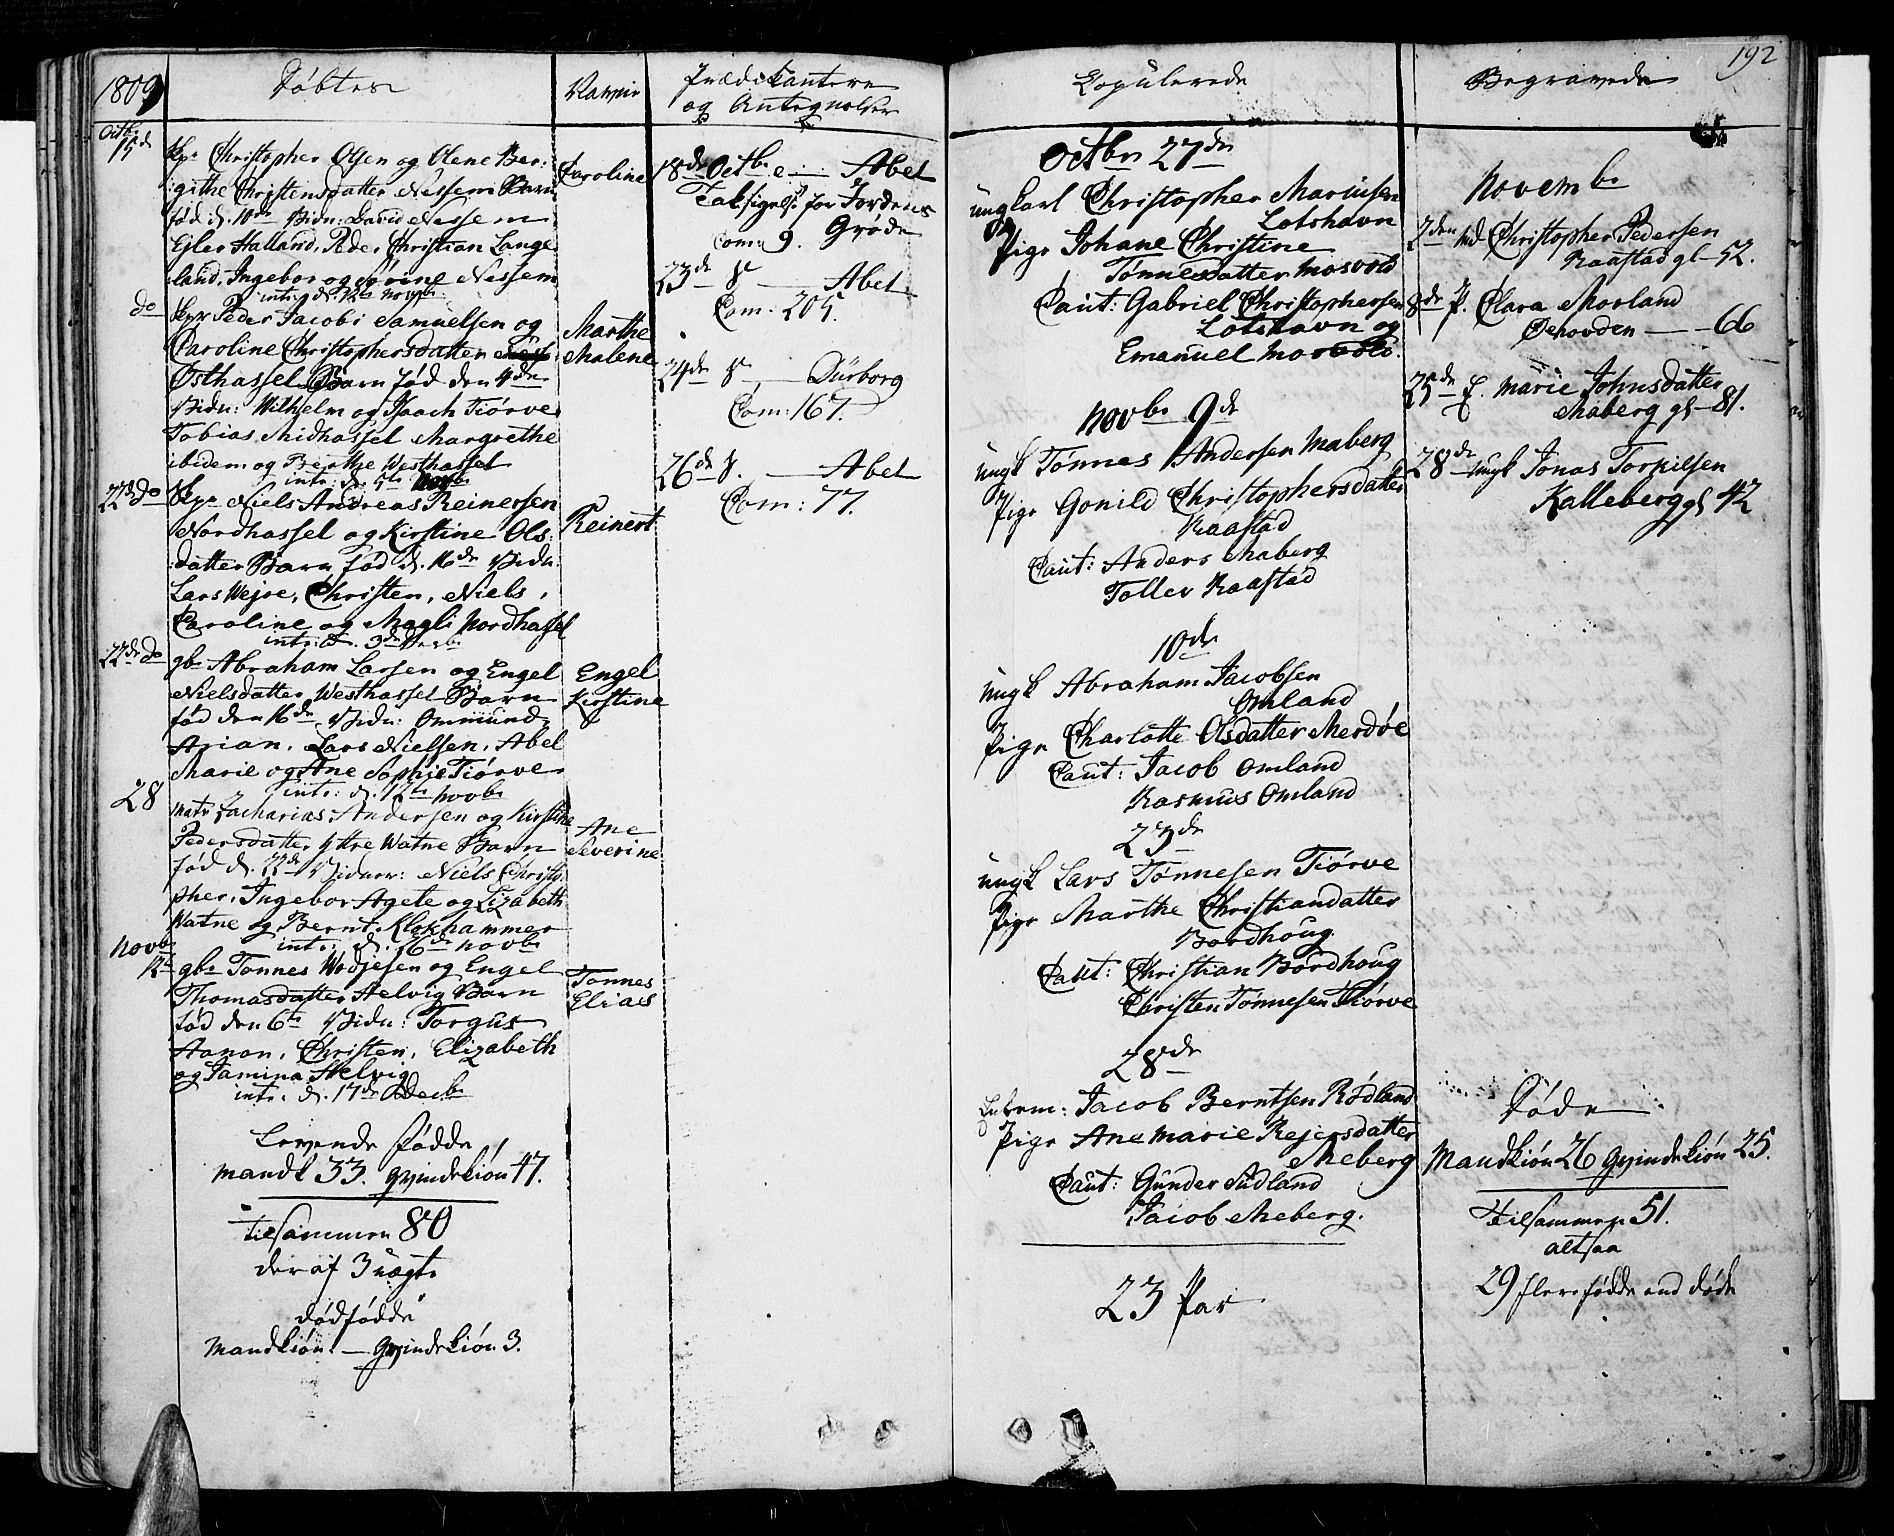 1809
Døbte
Navne
Prædikantere
og Antegnelser
Octbr
15de
Skpr Christopher Olsen og Olene Ber:
githe Christensdatter Nessem Barn
fød d. 10de Vidn: David Nessem
Ejler Halland, Peder Christian Lange
land, Ingebor og Sørine Nessem
intr: d. 12te Novbr
Caroline
do
Skpr Peder Jacobi Samuelsen og
Caroline Christophersdatter
Østhassel Barn fød den 4de
Vidn: Wilhelm og Isaach Tiørve
Tobias Midhassel Margrethe
ibidem og Berthe Westhassel
intr: d. 5te Novbr
Marthe
Malene
22de do
Skpr Niels Andreas Reinersen
Nordhassel og Kirstine Ols:
datter Barn fød d. 16de Vidn:
Lars Wejre, Christen, Niels,
Caroline og Magli Nordhassel
intr: d. 3de Decbr
Reinert
22de do
gbr Abraham Larsen og Engel
Nielsdatter Westhassel Barn
fød den 16de Vidn: Ommund,
Arian, Lars Nielsen, Abel
Marie og Ane Sophie Tiørve
intr: d. 12te Novbr
Engel
Kirstine
28
Matr Zacharias Andersen og Kirstine
Pedersdatter Yttre Watne Barn
fød d. 22de Vidner: Niels Christo
pher, Ingebor Agete og Lizabeth
Watne og Bernt Klokhammer
intr: d. 26de Novbr
Ane
Severine
Novbr
12te
gbr Tønnes Wodjesen og Engel
Thomasdatter Helvig Barn
fød den 6te Vidn: Torgus
Aanon, Christen, Elizabeth
og Tamina Helvig
intr: d. 17de Decbr
Tønnes
Elias
Levende Fødde
Mandk 33. Qvindekiøn 47.
tilsammen 80
deraf 3 uægte
dødfødde
Mandkiøn — Qvindekiøn 3.
18de Octbr e — Abel
Taksigelse for Jordens
Grøde
Com: 9.
23de — Abel
Com. 205.
24de — Dürborg
Com: 167.
26de — Abel
Com: 77.
192
Copulerede
Octbr 27de
ungkarl Christopher Mariusen
Lotshavn
Pige Johane Christine
Tønnesdatter Mosvold
Caut: Gabriel Christophersen
Lotshavn og
Emanuel Mosvold.
Novbr 9de
ungk Tønnes Andersen Maberg
Pige Gonild Christophersdatter
Raastad
Caut: Anders Maberg
Tollev Raastad
10de
ungk Abraham Jacobsen
Omland
Pige Charlotte Olsdatter Merdøe
Caut: Jacob Omland
Rasmus Omland
23de
ungk Lars Tønnesen Tiørve
Pige Marthe Christiandatter
Bordhoug
Caut: Christian Bordhoug
Christen Tønnesen Tiørve
28de
Jacob Berntsen Rødland
Pige Ane Marie Rejersdatter
Meberg
Caut: Gunder Sudland
Jacob Meberg.
23 Par
Begravede
Novembr
2den Md Christopher Pedersen
Raastad gl 52.
8de P. Clara Morland
66
25de E. Marie Johnsdatter
Maberg gl 81.
28de ungk Jonas Torkilsen
Kalleberg gl 42
Døde
Mandkiøn 26 Qvindekiøn 25.
tilsammen 51.
altsaa
29 flere fødde end døde